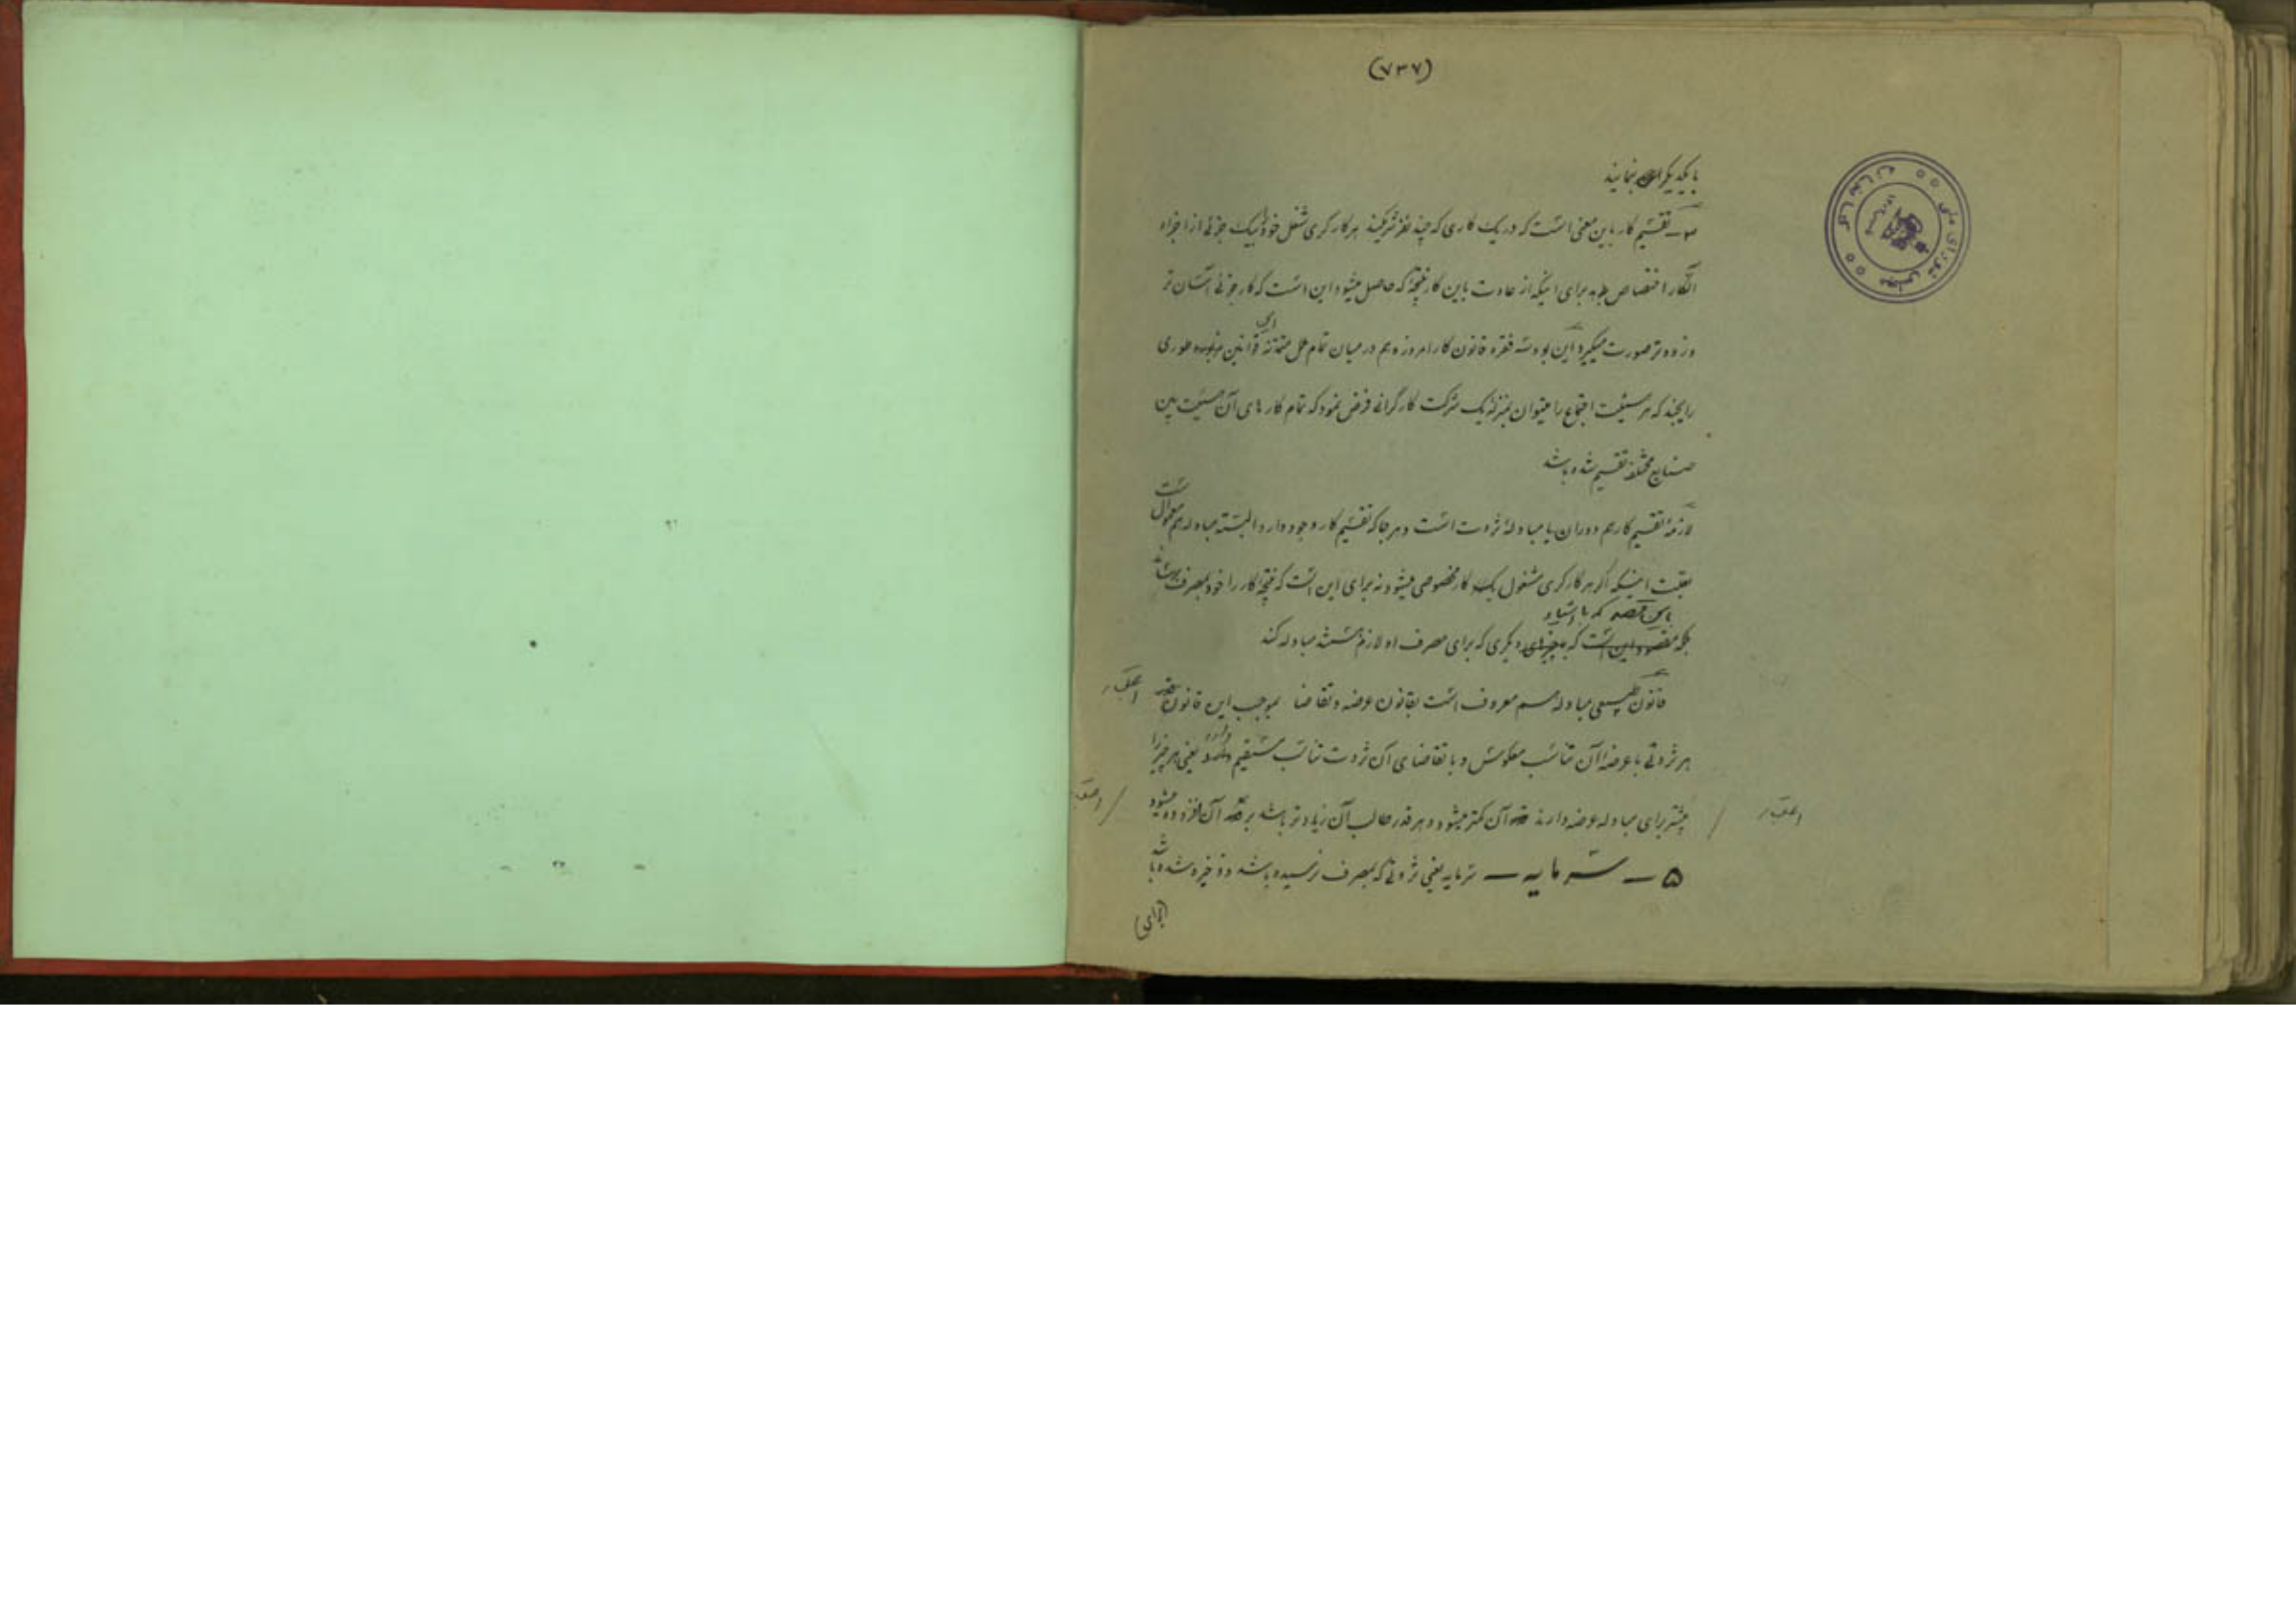 (۷۳۷)
با یکدیگر بنمایند
۳ـ تقسیم کار باین معنی است که در یک کاری که چند نفر شریکند هر کارگری شغل خود را بیک جزئی از اجزاء
آنکار اختصاص بدهد برای اینکه از عادت باین کار نتیجهٔ که حاصل میشود این است که کار جزئی آسان تر
و زودتر صورت میگیرد این بود سه فقره قانون کار امروزه هم در میان تمام ملل متمدنه این قوانین بطوری
رایجند که هر هیئت اجتماع را میتوان بمنزلهٔ یک شرکت کارگرانی فرض نمود که تمام کارهای آن هیئت بین
صنایع مختلفه تقسیم شده باشد
لازمهٔ تقسیم کار هم دوران یا مبادلهٔ ثروت است و هر جا که تقسیم کار وجود دارد البته مبادله هم معمول است
بعلت اینکه اگر هر کارگری مشغول یک کار مخصوصی میشود نه برای این است که نتیجهٔ کار را خود بمصرف برساند
باین قصد که با اشیاء
بلکه مقصود این است که بچیزهای دیگری که برای مصرف او لازم هستند مبادله کند
قانون طبیعی مبادله هم معروف است بقانون عرضه و تقاضا بموجب این قانون
هر ثروتی با عرضهٔ آن تناسب معکوس و با تقاضای آن ثروت تناسب مستقیم دارد یعنی هر چیز را
بیشتر برای مبادله عرضه دارند آن کمتر میشود و هر قدر طالب آن زیادتر باشد بر آن افزوده میشود
۵ ـ سرمایه ـ سرمایه یعنی ثروتی که بمصرف نرسیده باشد و ذخیره شده باشد
(برای)